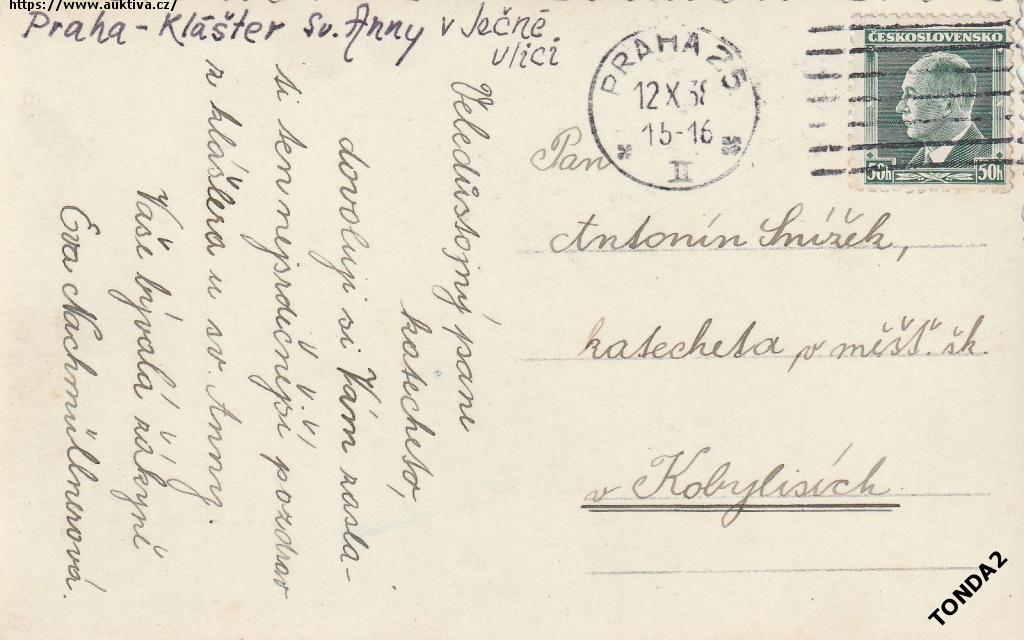 https://www.auktiva.cz/
Praha - Klášter sv. Anny v Ječné
ulici
ČESKOSLOVENSKO
50h 50h
PRAHA 25
12 X 38
15-16
* II *
Veledůstojný pane
katecheto,
dovoluji si Vám zasla-
ti ten nejsrdečnější pozdrav
z kláštera u sv. Anny.
Vaše bývalá žákyně
Eva Nachmüllnerová.
Pan
Antonín Snížek,
katecheta v měšť. šk.
v Kobylisích
TONDA2